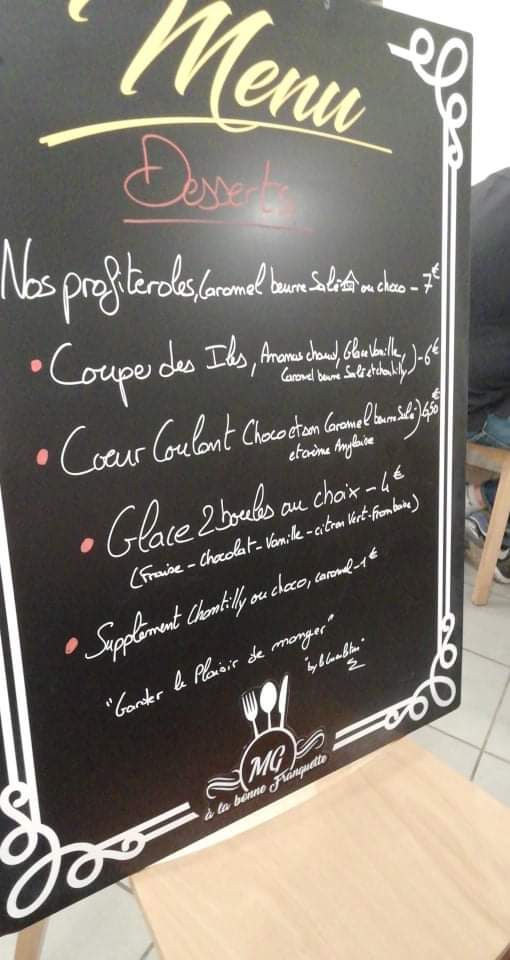 Menu
Desserts
Nos profiteroles, Caramel beurre Salé ou choco - 7€
• Coupe des Iles, Ananas chaud, Glace Vanille,
Caramel beurre Salé et chantilly,) - 6€
• Cœur Coulant Choco et son Caramel beurre Salé) 6,50€
et crème Anglaise
• Glace 2 boules au choix - 4€
(Fraise - Chocolat - Vanille - citron Vert - Framboise)
• Supplément Chantilly ou choco, caramel - 1€
"Garder le Plaisir de manger"
"by le
MG
à la bonne Franquette